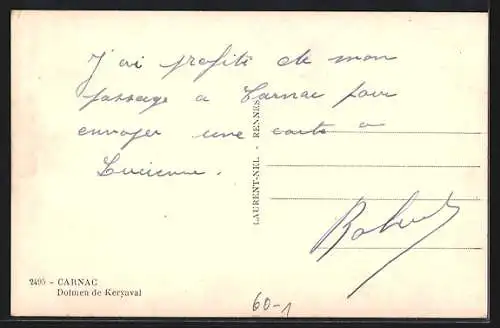 J'ai profité de mon
passage a Carnac pour
envoyer une carte a
Lucienne.
LAURENT-NEL - RENNES
Robert
2495 - CARNAC
Dolmen de Keryaval
60-1